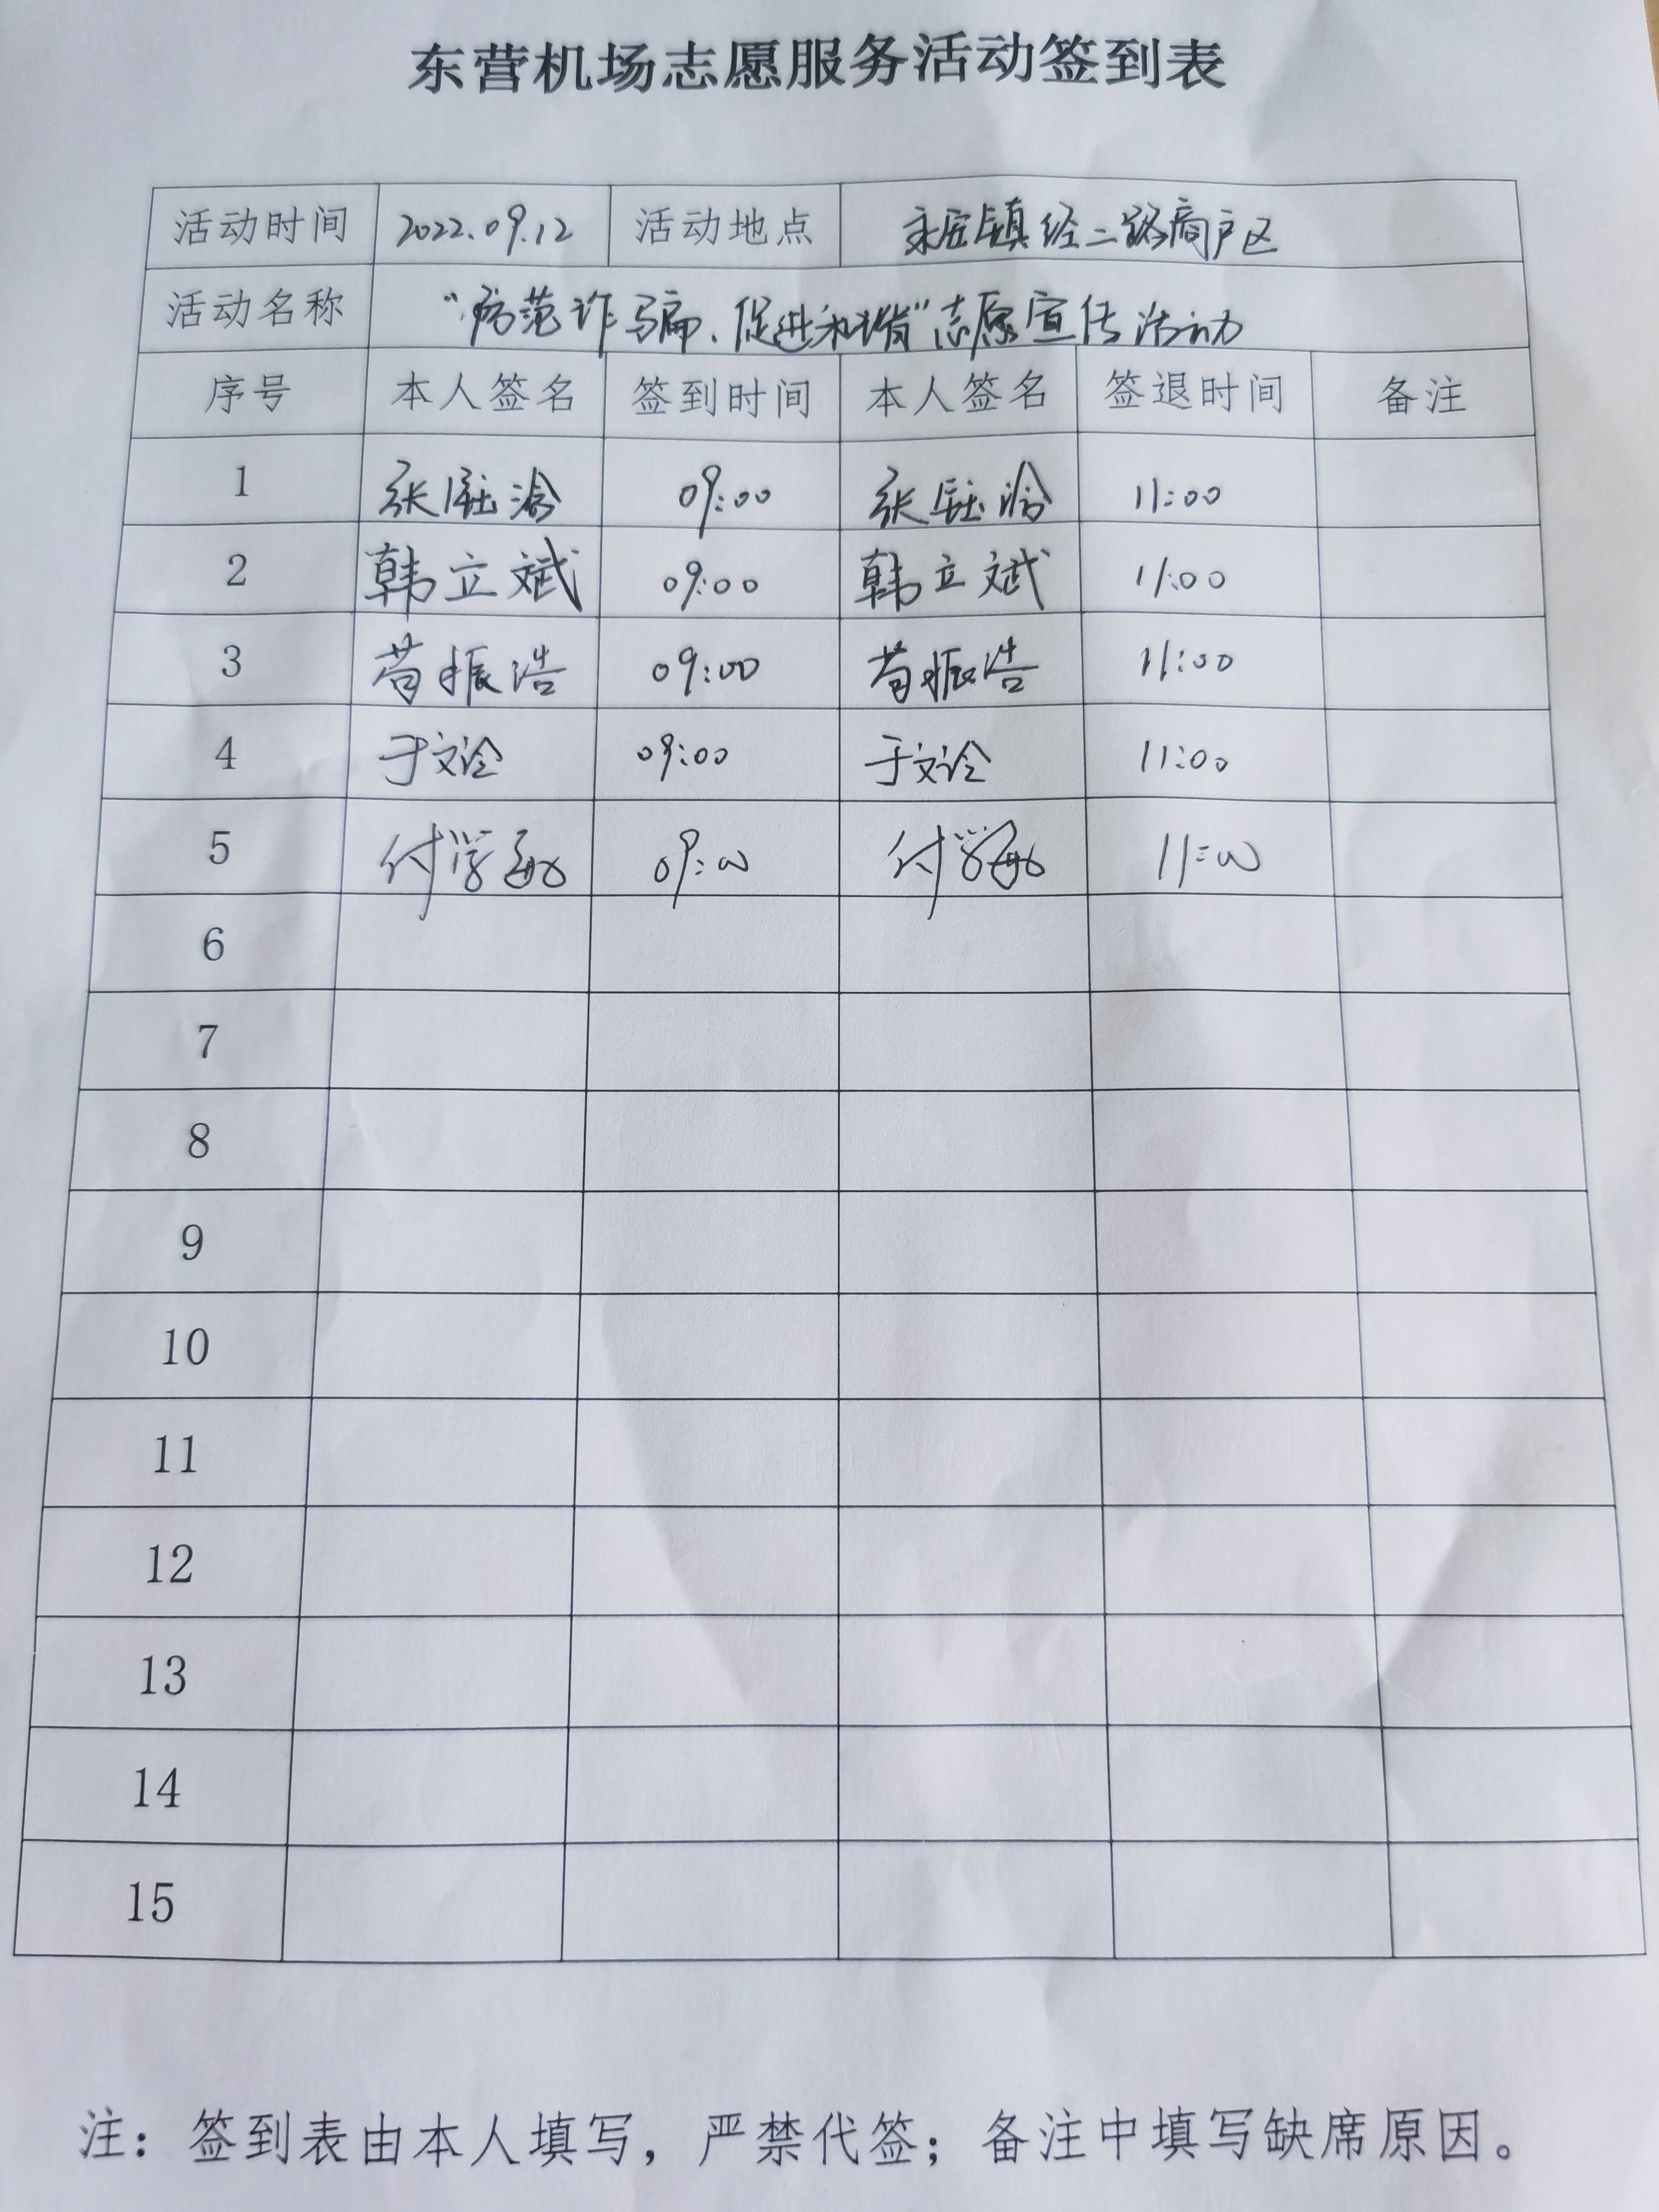 东营机场志愿服务活动签到表
活动时间 2022.09.12 活动地点 永安镇经二路商户区
活动名称 “防范诈骗、促进和谐”志愿宣传活动
序号 本人签名 签到时间 本人签名 签退时间 备注
1 张 09:00 张 11:00
2 韩立斌 09:00 韩立斌 11:00
3 苟振浩 09:00 苟振浩 11:00
4 于文 09:00 于文 11:00
5 付学敏 09:00 付学敏 11:00
6
7
8
9
10
11
12
13
14
15
注：签到表由本人填写，严禁代签；备注中填写缺席原因。